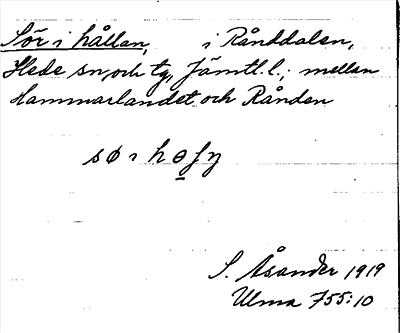 Sör i hållan, i Rånddalen,
Hede sn, och tg, Jämtl. l.; mellan
Hammarlandet och Rånden
S. Åsander 1919
Ulma 755:10